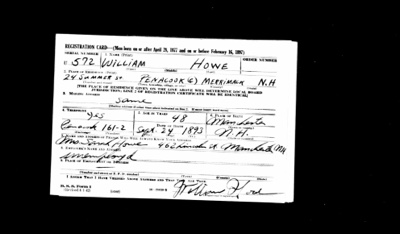 REGISTRATION CARD—(Men born on or after April 28, 1877 and on or before February 16, 1897)
SERIAL NUMBER 1. NAME (Print) ORDER NUMBER
U 572 WILLIAM HOWE
2. PLACE OF RESIDENCE (Print)
24 SUMMER ST PENACOOK MERRIMACK N.H
[THE PLACE OF RESIDENCE GIVEN ON THE LINE ABOVE WILL DETERMINE LOCAL BOARD
JURISDICTION; LINE 2 OF REGISTRATION CERTIFICATE WILL BE IDENTICAL]
3. MAILING ADDRESS
Same
4. TELEPHONE 5. AGE IN YEARS 6. PLACE OF BIRTH
yes 48 Manchester
DATE OF BIRTH
161-2 Sept. 24 1893 N.H.
7. NAME AND ADDRESS OF PERSON WHO WILL ALWAYS KNOW YOUR ADDRESS
Mrs. Sarah Howe 46 Manchester NH
8. EMPLOYER'S NAME AND ADDRESS
unemployed
9. PLACE OF EMPLOYMENT OR BUSINESS
I AFFIRM THAT I HAVE VERIFIED ABOVE ANSWERS AND THAT THEY ARE TRUE.
D. S. S. Form 1